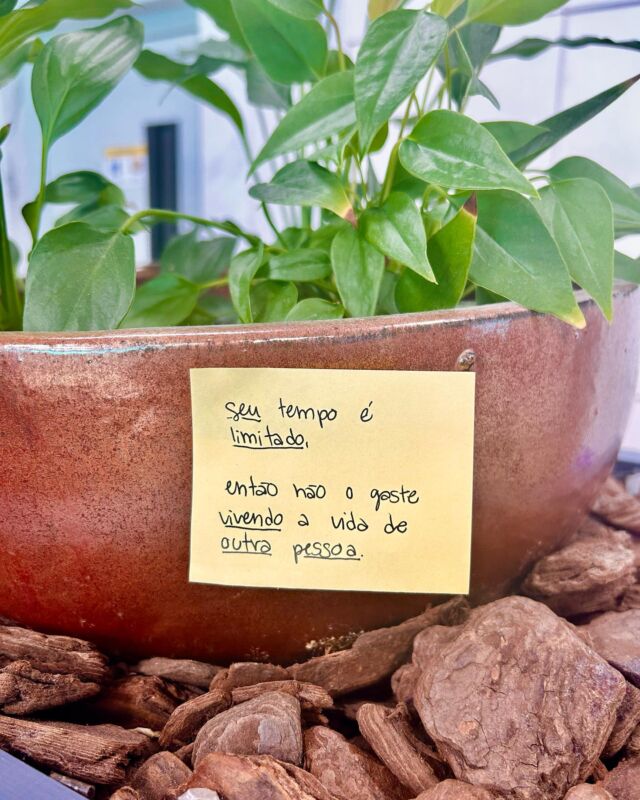 seu tempo é
limitado.
então não o gaste
vivendo a vida de
outra pessoa.